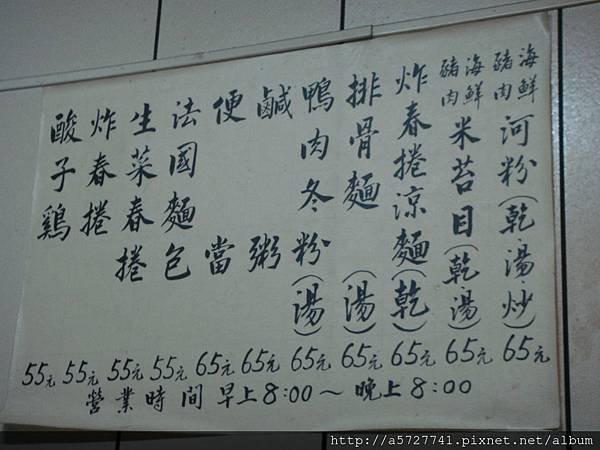 海鮮豬肉河粉(乾、湯、炒) 65元
海鮮豬肉米苔目(乾、湯) 65元
炸春捲涼麵(乾) 65元
排骨麵(湯) 65元
鴨肉冬粉(湯) 65元
鹹粥 65元
便當 65元
法國麵包 55元
生菜春捲 55元
炸春捲 55元
酸子鷄 55元
營業時間早上8:00～晚上8:00
http://a5727741.pixnet.net/album